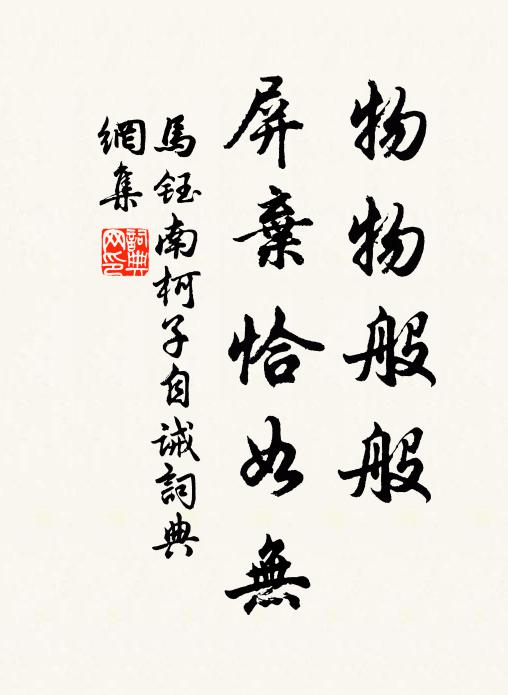 物物般般
屏棄恰如無
馬鈺南柯子自誡詞典
網集
詞典
网印